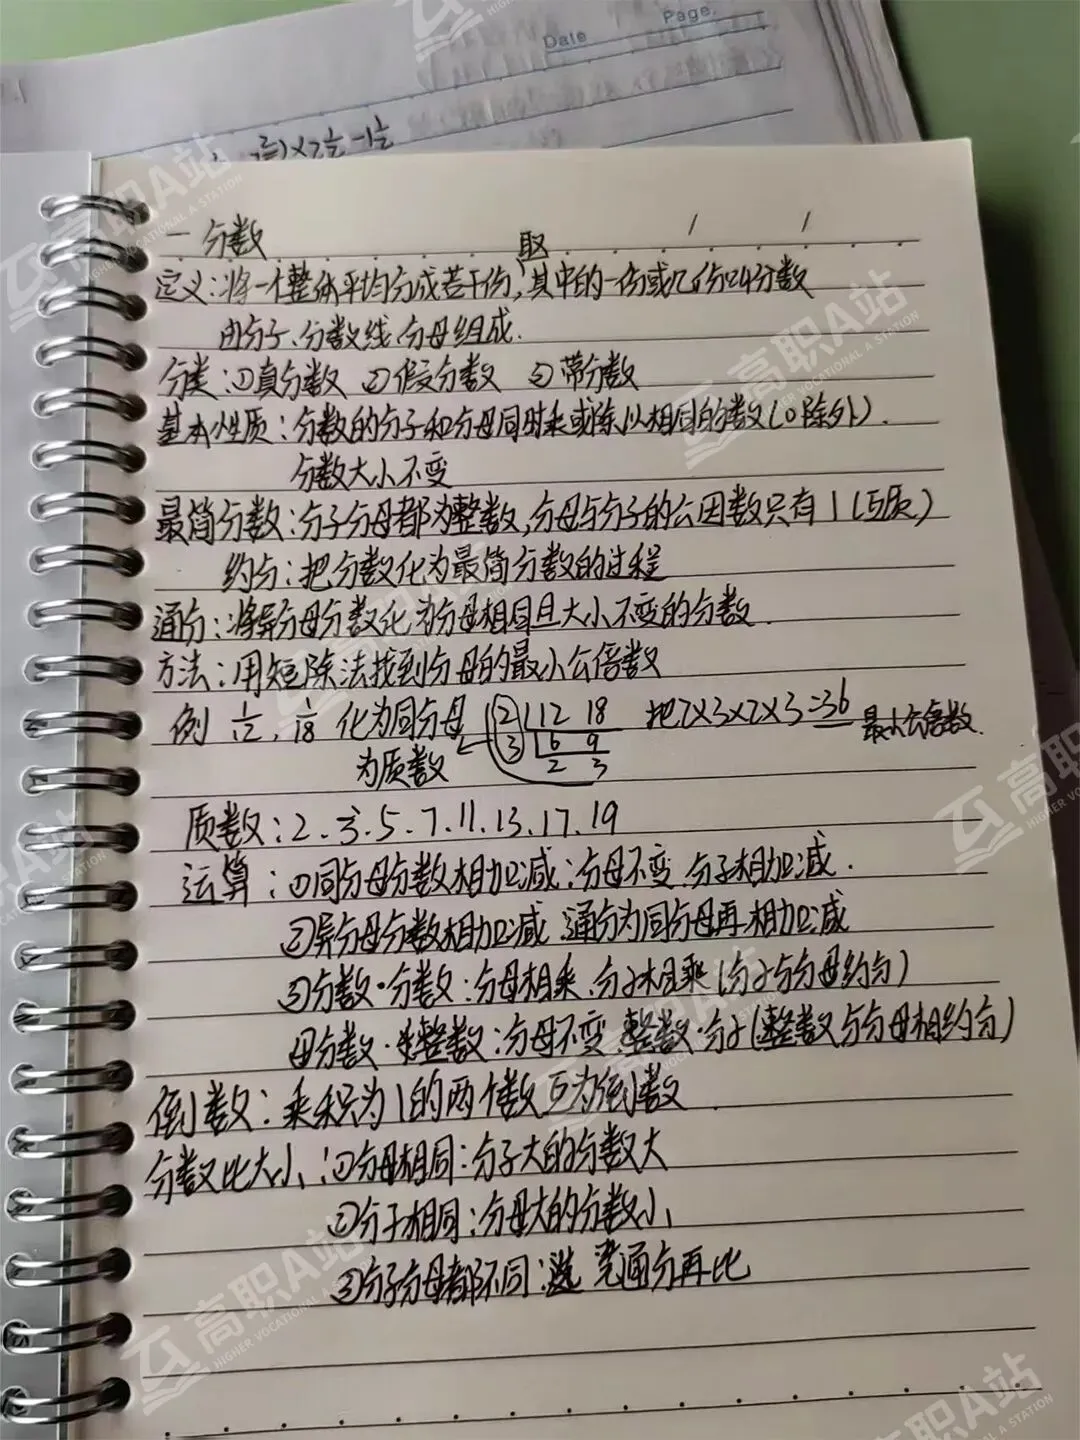 Date Page.
)×2½-1½
一分数
取
定义:将一个整体平均分成若干份,其中的一份或几份叫分数
由分子、分数线、分母组成.
分类:①真分数 ②假分数 ③带分数
基本性质:分数的分子和分母同时乘或除以相同的数(0除外).
分数大小不变
最简分数:分子分母都为整数,分母与分子的公因数只有1(互质)
约分:把分数化为最简分数的过程
通分:将异分母分数化为分母相同且大小不变的分数.
方法:用短除法找到分母的最小公倍数
例 1/12, 1/18 化为同分母 2 12 18 把2×3×2×3=36 最小公倍数.
3 6 9
为质数 2 3
质数:2.3.5.7.11.13.17.19
运算:①同分母分数相加减:分母不变.分子相加减.
②异分母分数相加减 通分为同分母再相加减
③分数·分数:分母相乘.分子相乘(分子与分母约分)
④分数·整数:分母不变.整数·分子(整数与分母相约分)
倒数:乘积为1的两个数互为倒数.
分数比大小:①分母相同:分子大的分数大
②分子相同:分母大的分数小
③分子分母都不同:先通分再比
高职A站
HIGHER VOCATIONAL A STATION